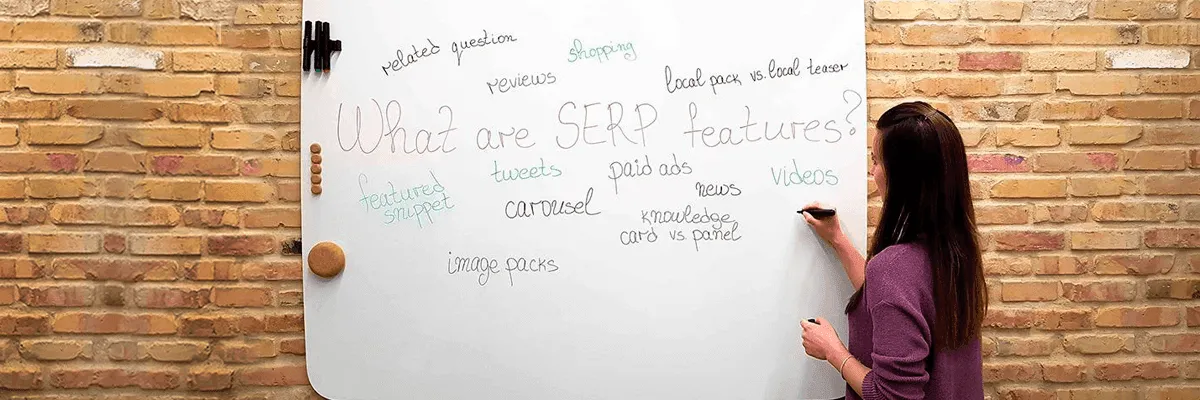 related question
shopping
reviews
local pack vs. local teaser
What are SERP features?
featured
snippet
tweets
paid ads
videos
carousel
news
knowledge
card vs. panel
image packs